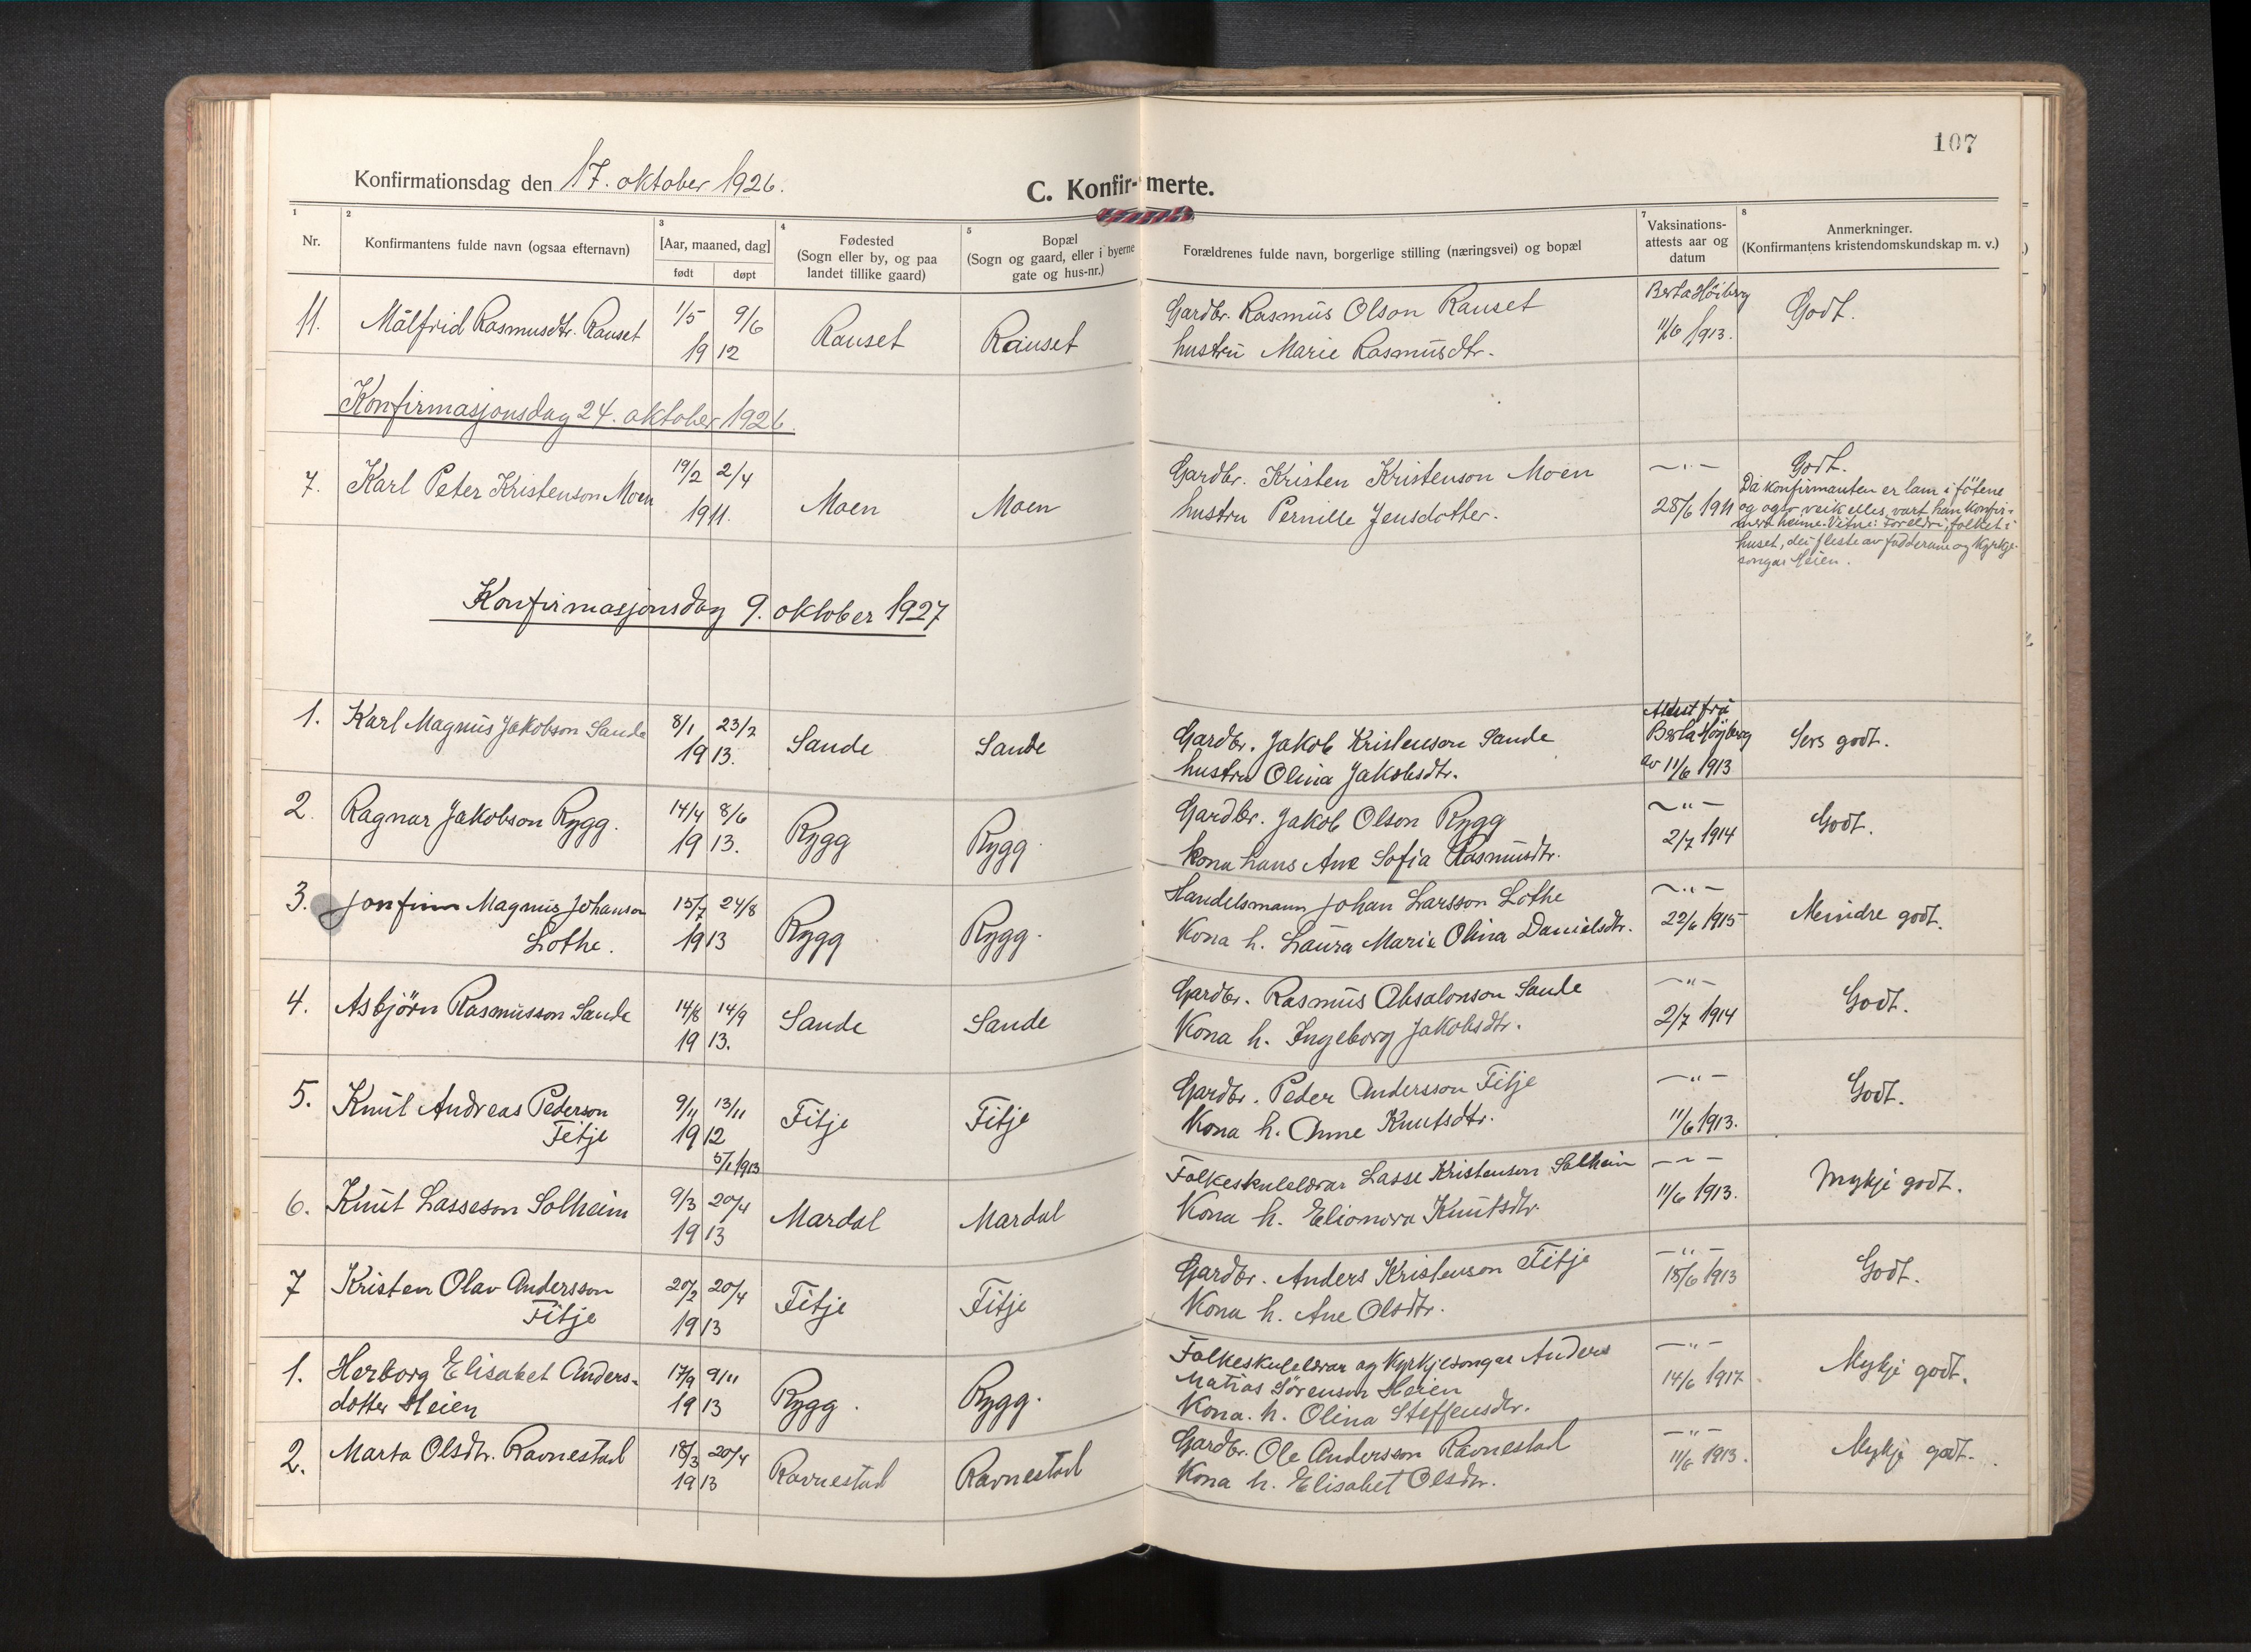 107
Konfirmationsdag den 17. oktober 1926.
C. Konfir-merte.
1 2 3 4 5 7 8
Nr.
Konfirmantens fulde navn (ogsaa efternavn)
[Aar, maaned, dag]
født døpt
Fødested
(Sogn eller by, og paa
landet tillike gaard)
Bopæl
(Sogn og gaard, eller i byerne
gate og hus-nr.)
Forældrenes fulde navn, borgerlige stilling (næringsvei) og bopæl
Vaksinations-
attests aar og
datum
Anmerkninger.
(Konfirmantens kristendomskundskap m. v.)
11. Målfrid Rasmusdtr. Rauset 1/5 9/6 1912 Rauset Rauset
Gardbr. Rasmus Olson Rauset
hustru Marie Rasmusdtr.
Berta Höiberg
11/6 1913.
Godt.
Konfirmasjonsdag 24. oktober 1926.
7. Karl Peter Kristenson Moen 19/2 2/4 1911. Moen Moen
Gardbr. Kristen Kristenson Moen
hustru Pernille Jensdotter.
— " —
28/6 1911
Godt.
Då konfirmanten er lam i fötene
og ogso veik elles, vart han konfir-
mert heime. Vitne: Foreldri, folket i
huset, dei fleste av fadderane og Kyrkje-
songar Heien.
Konfirmasjonsdag 9. oktober 1927
1. Karl Magnus Jakobson Sande 8/1 23/2 1913. Sande Sande
Gardbr. Jakob Kristenson Sande
hustru Olina Jakobsdtr.
Attest frå
Berta Höjberg
av 11/6 1913
Sers godt.
2. Ragnar Jakobson Rygg. 14/4 8/6 1913. Rygg Rygg
Gardbr. Jakob Olson Rygg
kona hans Ane Sofia Rasmusdtr.
— " —
2/7 1914
Godt.
3. Jonfinn Magnus Johanson
Lothe. 15/7 24/8 1913 Rygg Rygg.
Handelsmann Johan Larsson Lothe
Kona h. Laura Marie Olina Danielsdtr.
— " —
22/6 1915
Mindre godt.
4. Asbjörn Rasmusson Sande 14/8 14/9 1913. Sande Sande
Gardbr. Rasmus Absalonson Sande
Kona h. Ingeborg Jakobsdtr.
— " —
2/7 1914
Godt.
5. Knut Andreas Pederson
Fitje 9/11 13/11 1912 Fitje Fitje
5/1 1913
Gardbr. Peder Andersson Fitje
Kona h. Anne Knutsdtr.
— " —
11/6 1913.
Godt.
6. Knut Lasseson Solheim 9/3 20/4 1913 Mardal Mardal
Folkeskulelærar Lasse Kristenson Solheim
Kona h. Elionora Knutsdtr.
— " —
11/6 1913.
Mykje godt.
7 Kristen Olav Andersson
Fitje 20/2 20/4 1913 Fitje Fitje
Gardbr. Anders Kristenson Fitje
Kona h. Ane Olsdtr.
— " —
18/6 1913
Godt.
1. Herborg Elisabet Anders-
dotter Heien 17/9 9/11 1913 Rygg. Rygg.
Folkeskulelærar og Kyrkjesongar Anders
Matias Sörenson Heien
Kona. h. Olina Steffensdtr.
— " —
14/6 1917.
Mykje godt.
2. Marta Olsdtr. Ravnestad 18/3 20/4 1913 Ravnestad Ravnestad
Gardbr. Ole Andersson Ravnestad
Kona h. Elisabet Olsdtr.
— " —
11/6 1913.
Mykje godt.